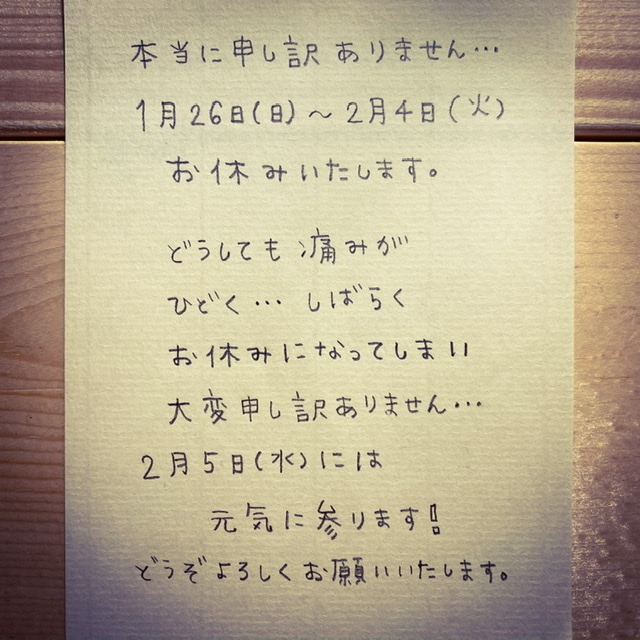 本当に申し訳ありません…
1月26日(日)～2月4日(火)
お休みいたします。
どうしても痛みが
ひどく…しばらく
お休みになってしまい
大変申し訳ありません…
2月5日(水)には
元気に参ります!
どうぞよろしくお願いいたします。